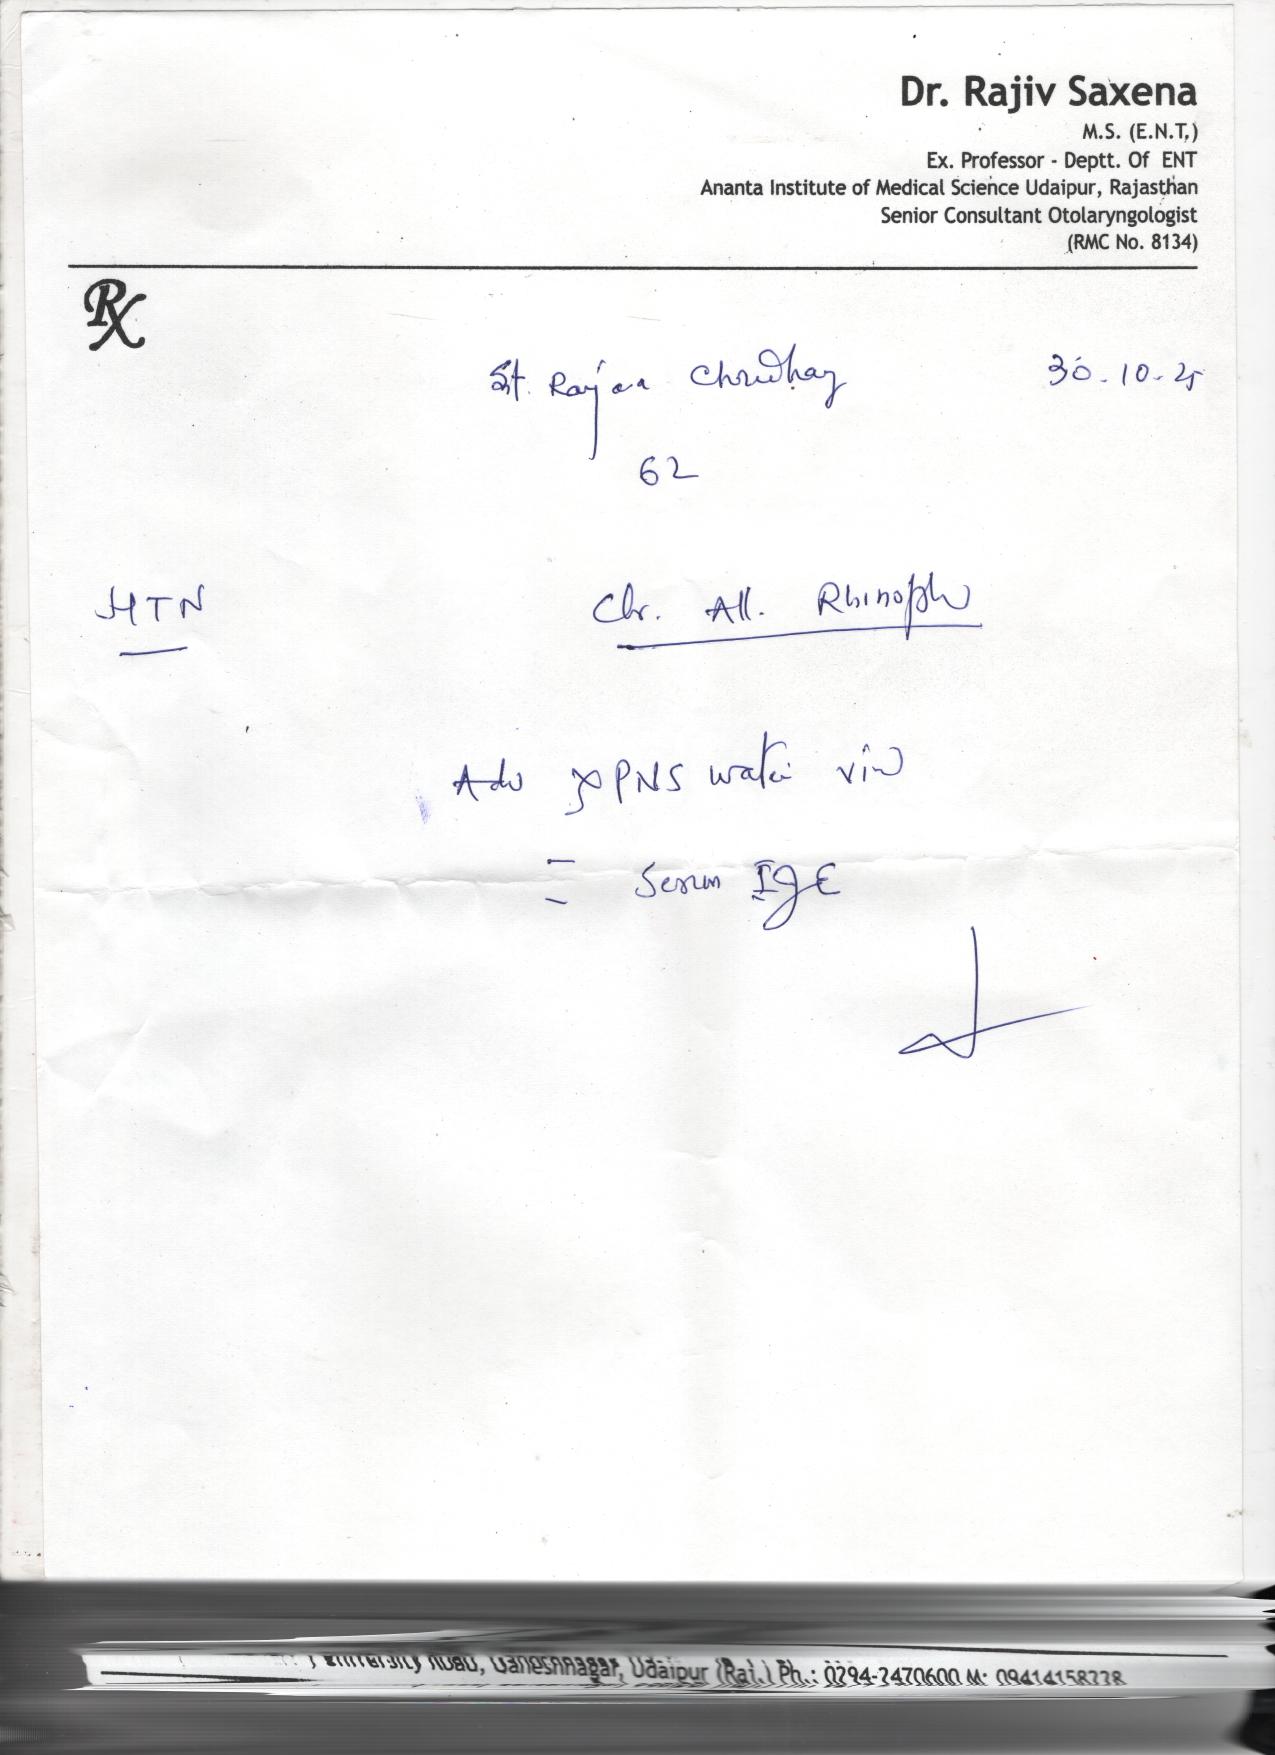 Dr. Rajiv Saxena
M.S. (E.N.T.)
Ex. Professor - Deptt. Of ENT
Ananta Institute of Medical Science Udaipur, Rajasthan
Senior Consultant Otolaryngologist
(RMC No. 8134)
Rx
30-10-25
62
HTN
Chr. All.
Adv PNS view
Serum IgE
University Road, Ganeshnagar, Udaipur (Raj.) Ph.: 0294-2470600 M: 09414158